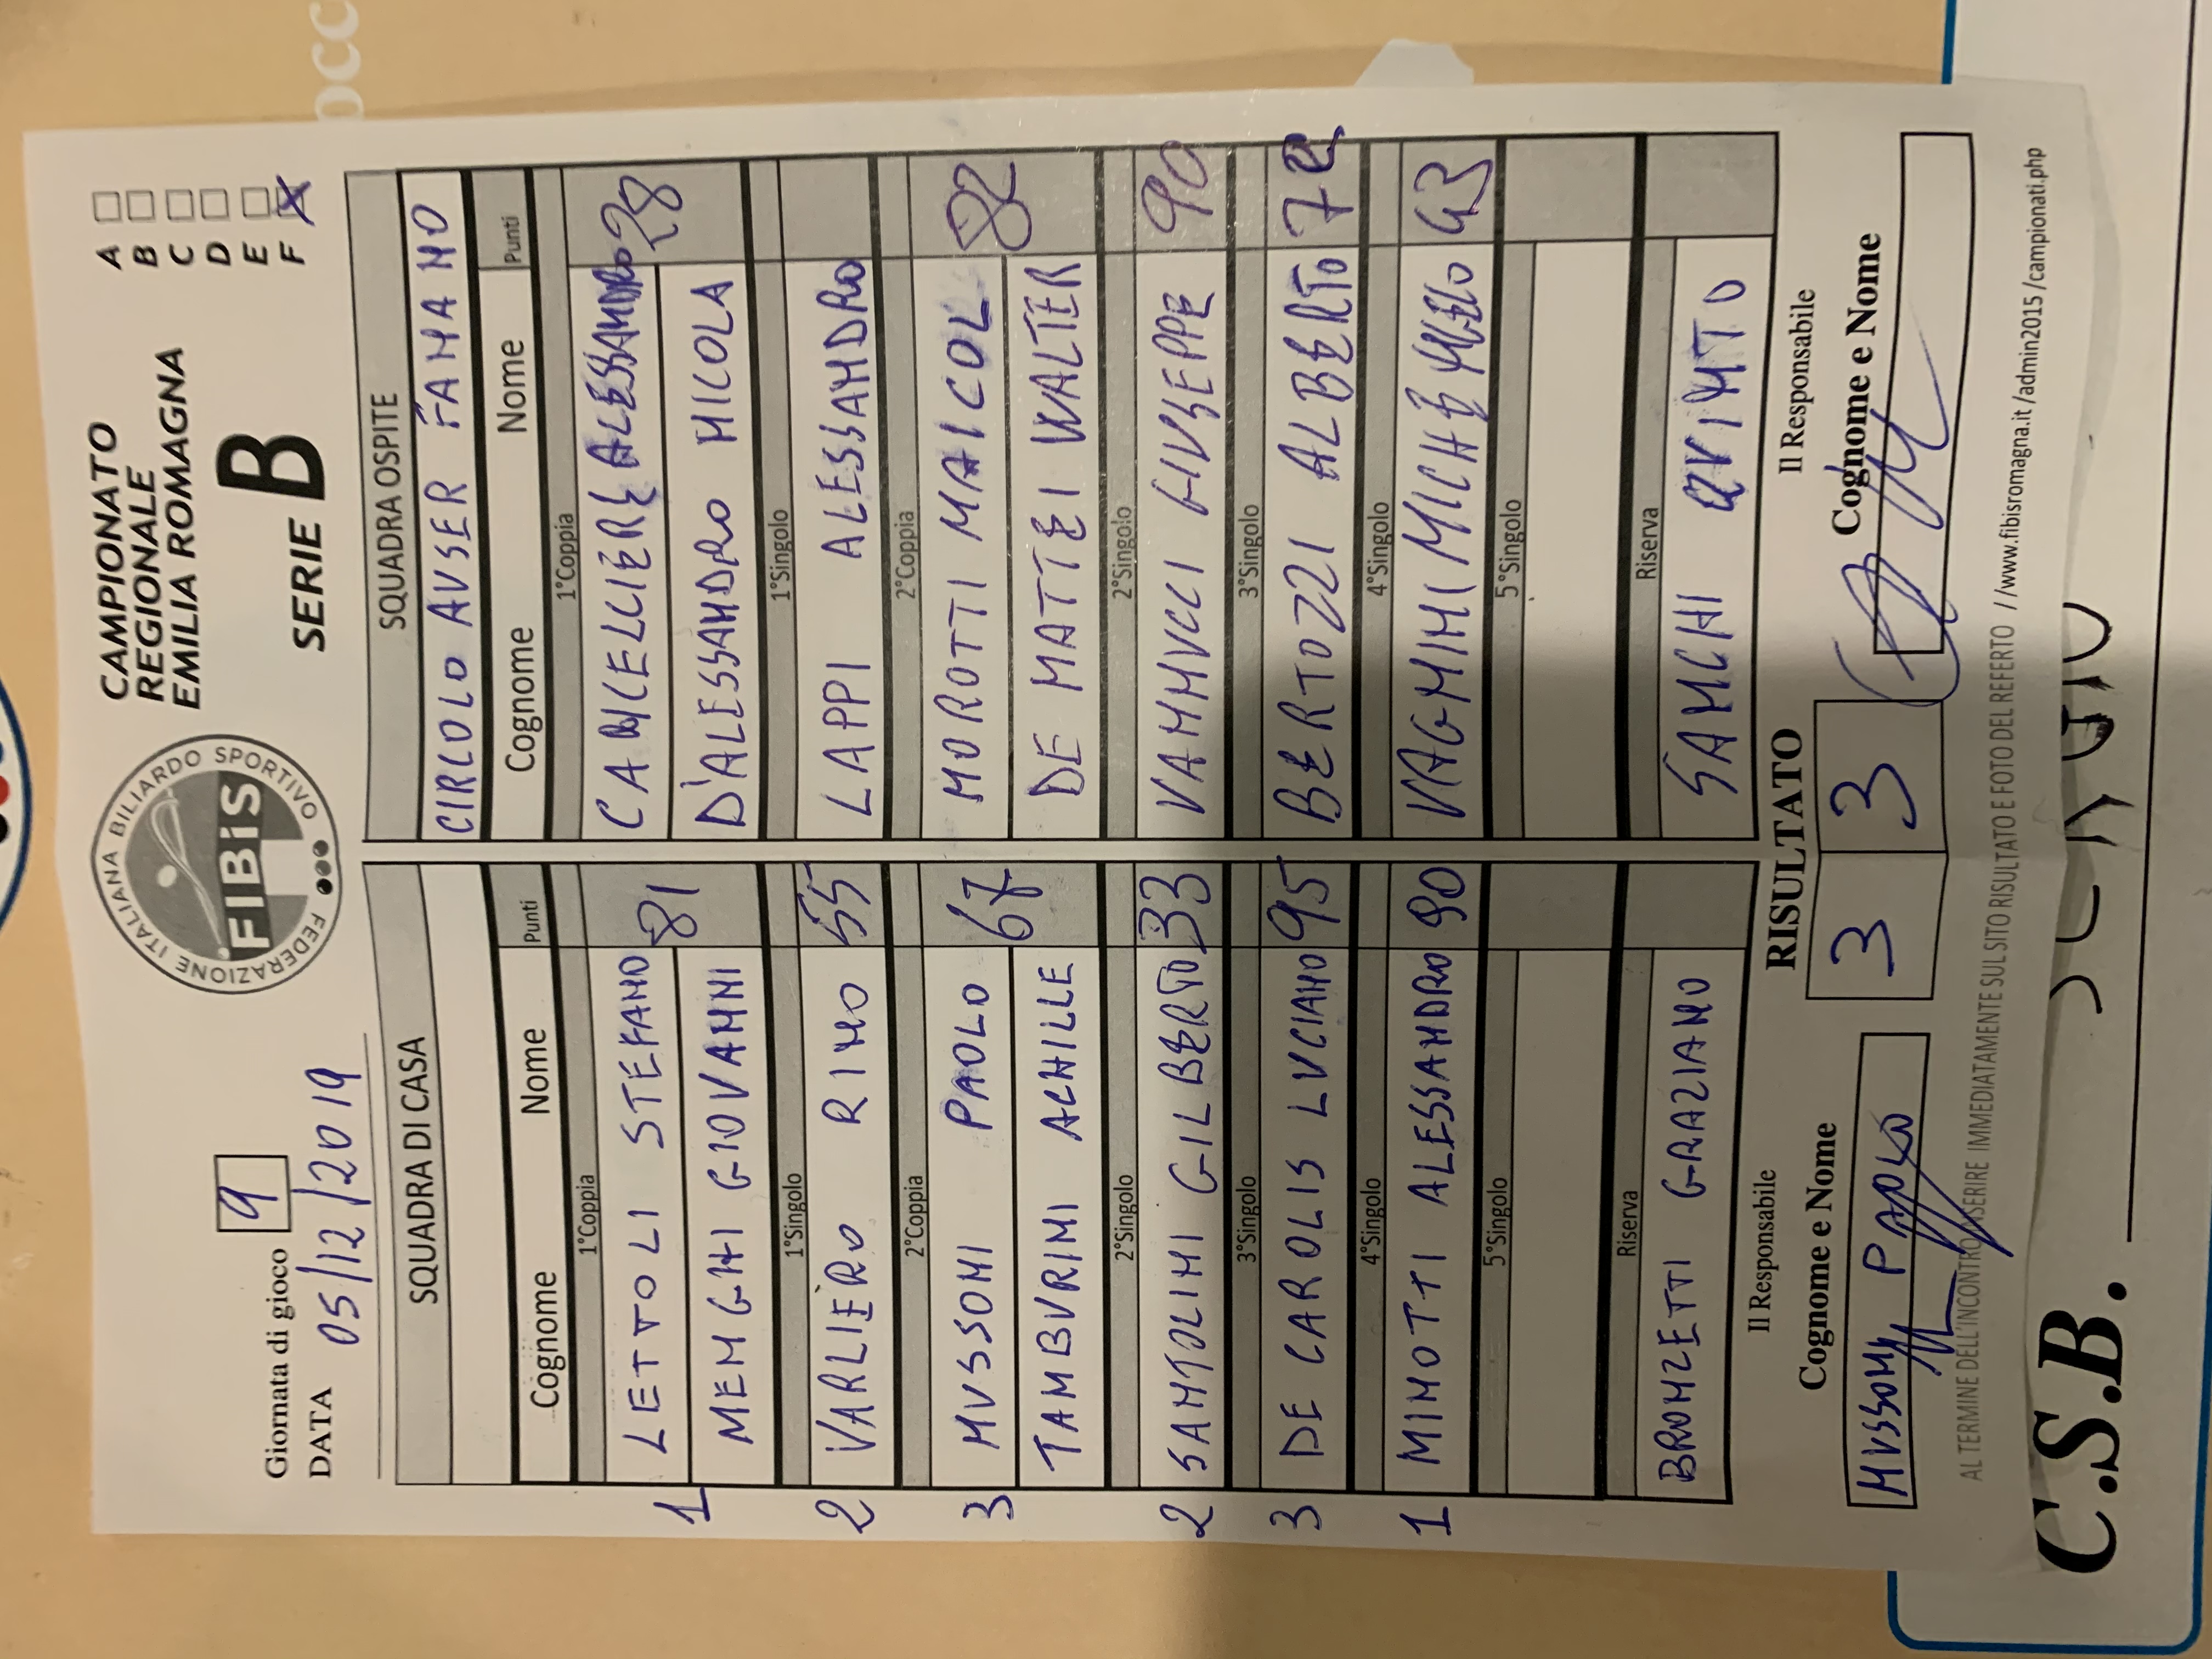 occ
Giornata di gioco 9
DATA 05/12/2019
FEDERAZIONE ITALIANA BILIARDO SPORTIVO
FIBiS
CAMPIONATO
REGIONALE
EMILIA ROMAGNA
SERIE B
A
B
C
D
E
F X
SQUADRA DI CASA
Cognome Nome Punti
1°Coppia
1 LETTOLI STEFANO 81
MENGHI GIOVANNI
1°Singolo
2 VARLIERO RINO 55
2°Coppia
3 MUSSONI PAOLO 67
TAMBURINI ACHILLE
2°Singolo
2 SANTOLINI GILBERTO 33
3°Singolo
3 DE CAROLIS LUCIANO 95
4°Singolo
1 MINOTTI ALESSANDRO 90
5°Singolo
Riserva
BRONZETTI GRAZIANO
SQUADRA OSPITE
CIRCOLO AUSER FANANO
Cognome Nome Punti
1°Coppia
CANCELLIERE ALESSANDRO 28
D'ALESSANDRO NICOLA
1°Singolo
LAPPI ALESSANDRO
2°Coppia
MOROTTI MAICOL 82
DE MATTEI WALTER
2°Singolo
VANNUCCI GIUSEPPE 90
3°Singolo
BERTOZZI ALBERTO 72
4°Singolo
VAGNINI 43
5°Singolo
Riserva
SANCHI QUINTO
Il Responsabile
Cognome e Nome
MUSSONI PAOLO
RISULTATO
3 3
Il Responsabile
Cognome e Nome
AL TERMINE DELL'INCONTRO INSERIRE IMMEDIATAMENTE SUL SITO RISULTATO E FOTO DEL REFERTO //www.fibisromagna.it /admin2015 /campionati.php
C.S.B.